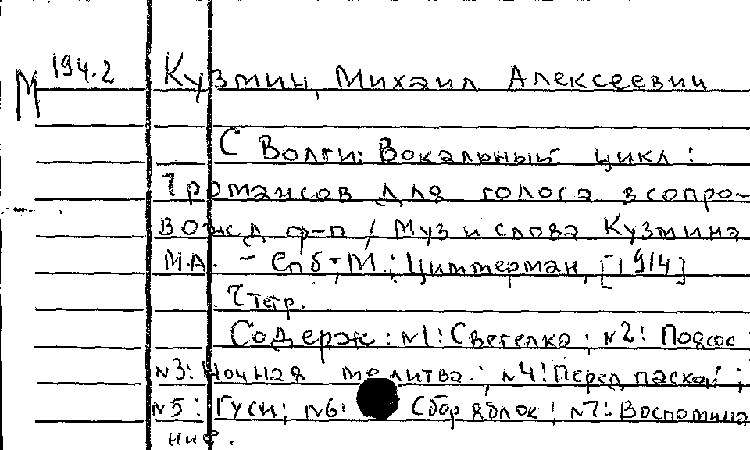 М 194.2 Кузмин, Михаил Алексеевич
С Волги: Вокальный цикл:
7 романсов для голоса в сопро-
вожд ф-п / Муз и слова Кузмина
М.А. - Спб-М.: Циммерман, [1914]
7 тетр.
Содерж: №1: Светелка; №2:
№3: Ночная молитва; №4: Перед пасхой;
№5: Гуси; №6: Сбор яблок; №7: Воспомина
ние.